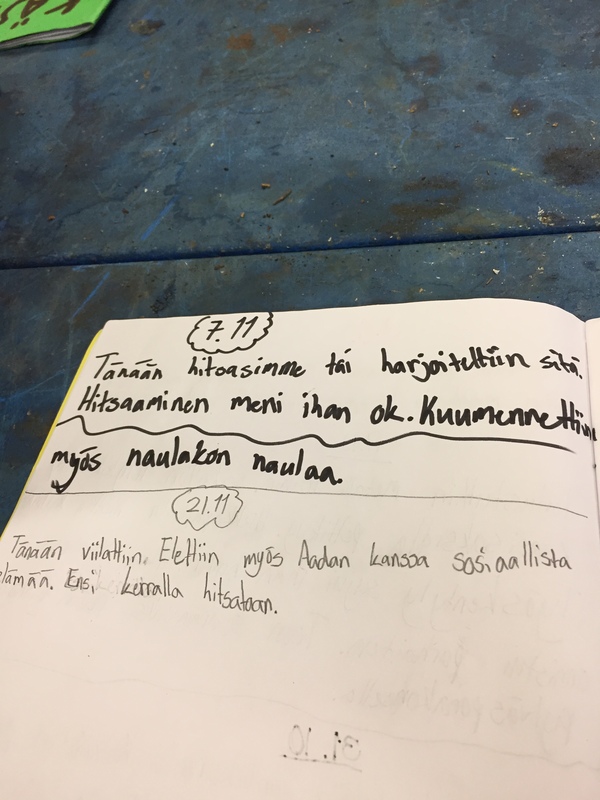 KÄS
7.11
Tänään hitsasimme tai harjoiteltiin sitä.
Hitsaaminen meni ihan ok. Kuumennettiin
myös naulakon naulaa.
21.11
Tänään viilattiin. Elettiin myös Aadan kanssa sosiaallista
elämää. Ensi kerralla hitsataan.
31.10